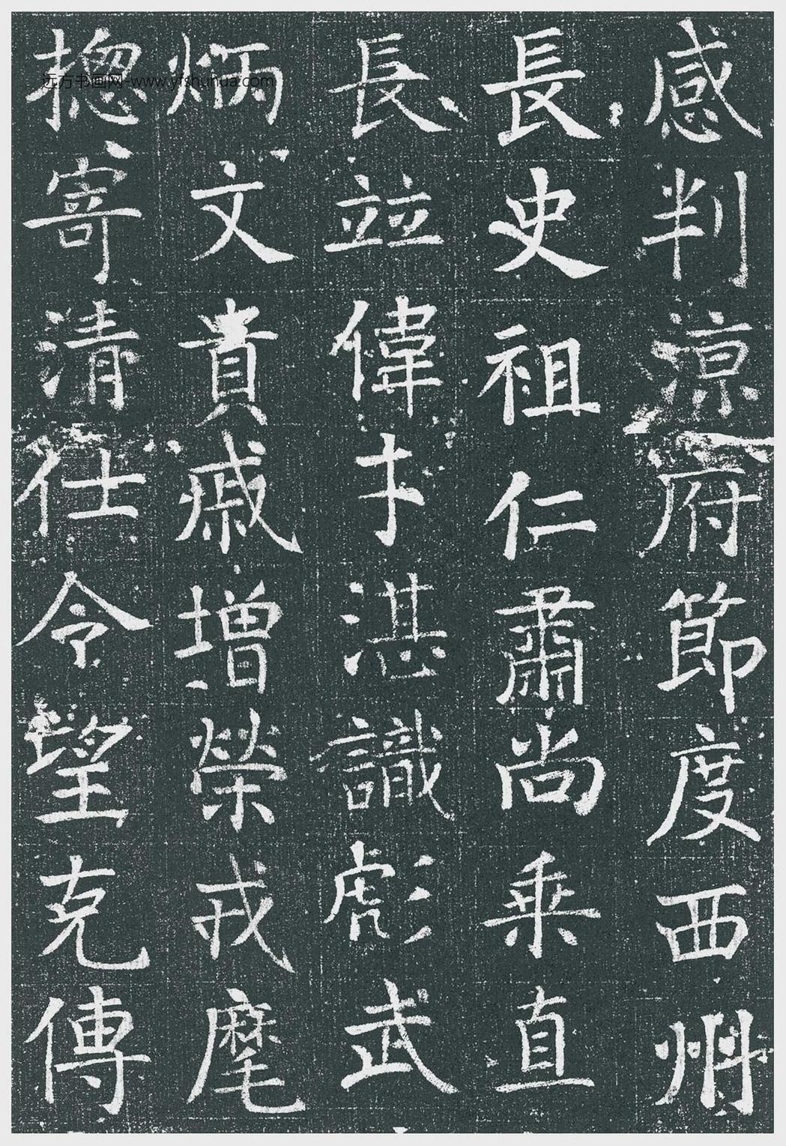 感判涼府節度西州
長史祖仁肅尚乘直
長並偉才湛識彪武
炳文貴戚增榮戎麾
揔寄清仕令望克傳
远方书画网-www.yfshuhua.com